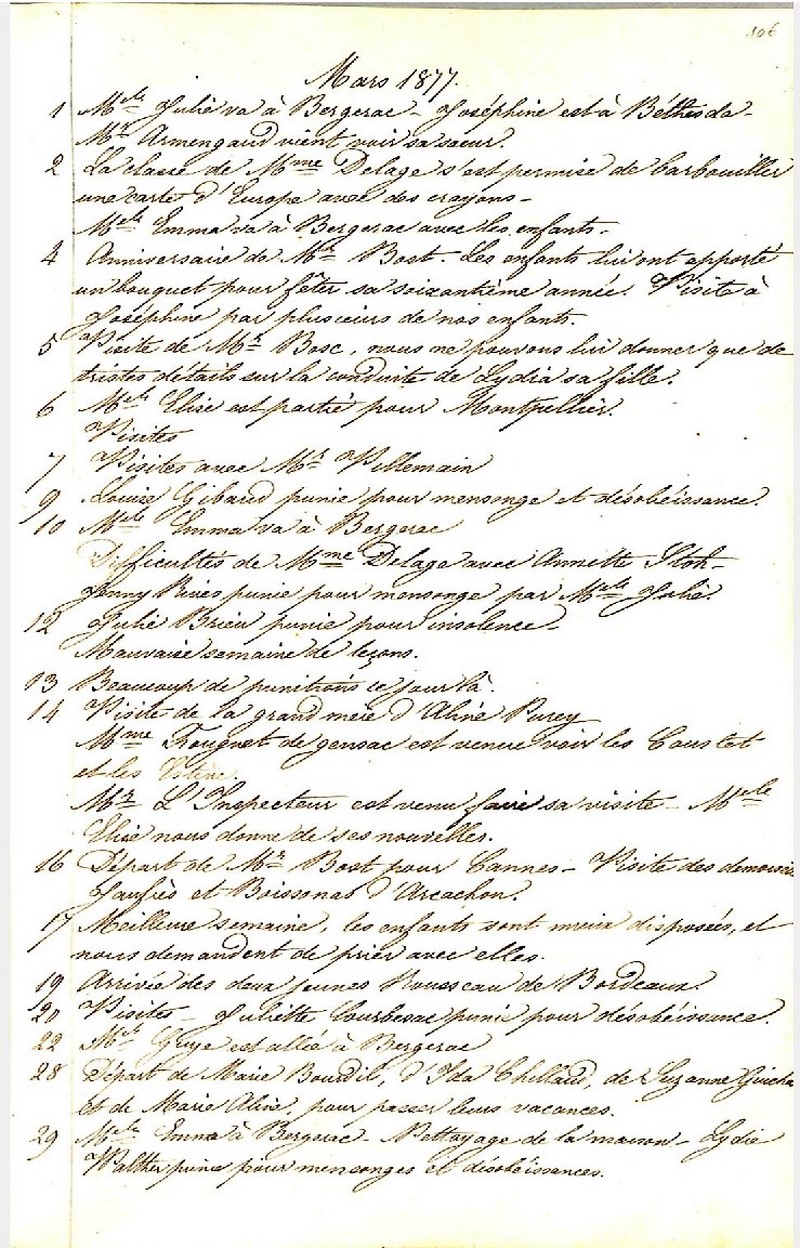 106
Mars 1877.
1 Melle Julie va à Bergerac - Joséphine est à Béthesda -
Mr Armengaud vient voir sa sœur.
2 La classe de Mme Delage s'est permise de barbouiller
une carte d'Europe avec des crayons -
Melle Emma va à Bergerac avec les enfants -
4 Anniversaire de Mr Bost. Les enfants lui ont apporté
un bouquet pour fêter sa soixantième année. Visite à
Joséphine par plusieurs de nos enfants.
5 Visite de Mr Bosc, nous ne pouvons lui donner que de
tristes détails sur la conduite de Lydia sa fille.
6 Melle Elise est partie pour Montpellier.
Visites
7 Visites avec Mr Villemain
9 Louise Gibaud punie pour mensonge et désobéissance.
10 Melle Emma va à Bergerac
Difficultés de Mme Delage avec Annette Stoh -
Jenny Rives punie pour mensonge par Melle Julie.
12 Julie Brieu punie pour insolence -
Mauvaise semaine de leçons.
13 Beaucoup de punitions ce jour là.
14 Visite de la grand mère d'Aline Purey
Mme Fouguet de gensac est venue voir les Coustet
et les
Mr L'Inspecteur est venu faire sa visite - Melle
Elise nous donne de ses nouvelles.
16 Départ de Mr Bost pour Cannes - Visite des
Jaufrès et Boissonas d'Arcachon.
17 Meilleure semaine, les enfants sont mieux disposées, et
nous demandent de prier avec elles.
19 Arrivée des deux jeunes Rousseau de Bordeaux.
20 Visites - Juliette Courbesac punie pour désobéissance.
22 Melle Guye est allée à Bergerac
28 Départ de Marie Bourdil, d'Ida Chellaud, de Suzanne
et de Marie Alise, pour passer leurs vacances.
29 Melle Emma à Bergerac - Nettoyage de la maison - Lydie
Walther punie pour mensonges et désobéissances.